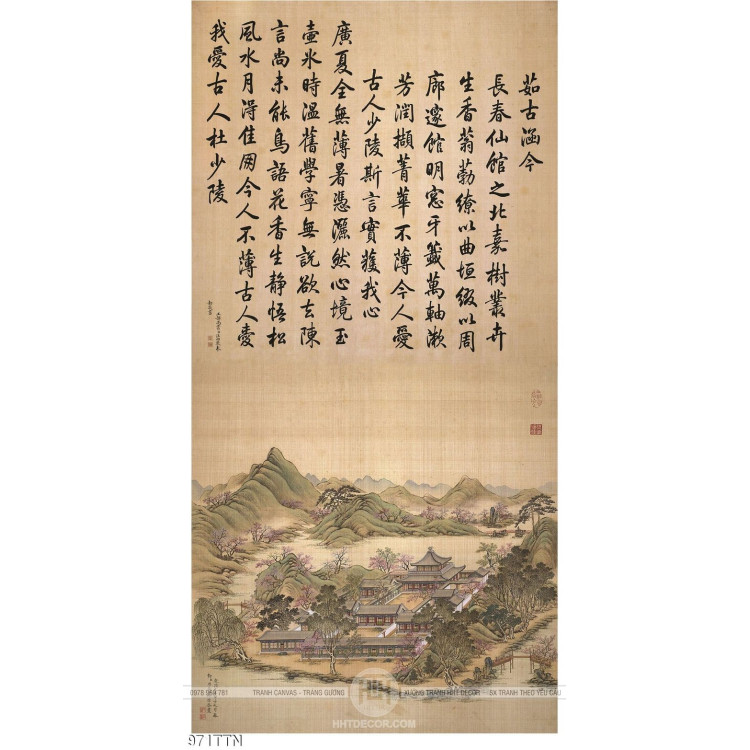 茹古涵今
長春仙館之北嘉樹叢卉
生香蓊勃繚以曲垣綴以周
廊邃館明窓牙籤萬軸漱
芳潤擷菁華不薄今人愛
古人少陵斯言實獲我心
廣夏全無薄暑憑灑然心境玉
壺氷時溫舊學寧無說欲去陳
言尚未能鳥語花香生静悟松
風水月淂佳朋今人不薄古人愛
我愛古人杜少陵
0978 989 781
TRANH CANVAS - TRÁNG GƯƠNG
XƯỞNG TRANH HHT DECOR - SX TRANH THEO YÊU CẦU
HHTDECOR.COM
971TTN